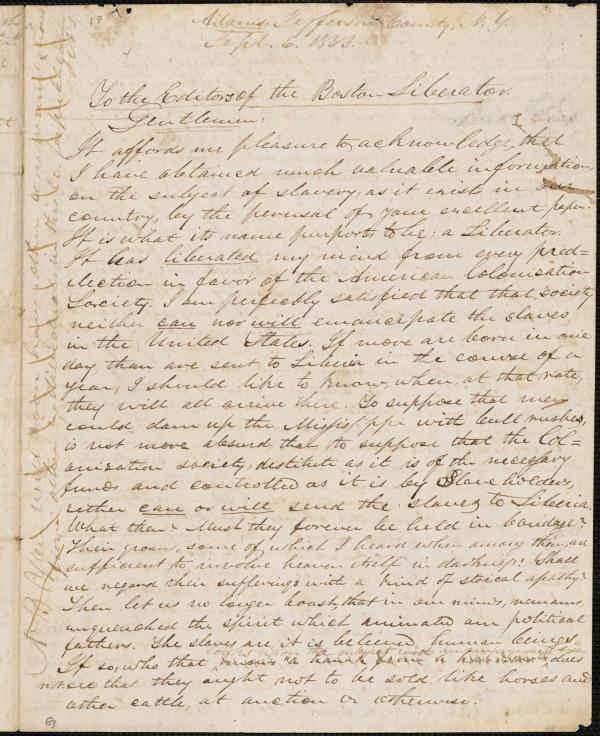 Adams, Jefferson County, N. Y.
Sept. 6. 1833.
To the Editors of the Boston Liberator.
Gentlemen:
It affords me pleasure to acknowledge, that
I have obtained much valuable information,
on the subject of slavery, as it exists in our
country, by the perusal of your excellent paper.
It is what its name purports to be: a Liberator.
It has liberated my mind from every pred=
election in favor of the American Colonization
Society. I am perfectly satisfied that that society
neither can nor will emancipate the slaves
in the United States. If more are born in one
day, than are sent to Liberia in the course of a
year, I should like to know, when, at that rate,
they will all arrive there. To suppose that men
could dam up the Mississippi with bull rushes,
is not more absurd than to suppose that the Col=
onization society, destitute as it is of the necessary
funds and controlled as it is by Slave holders,
either can or will send the slaves to Liberia.
What then? Must they forever be held in bondage?
Their groans, some of which I heard when among them, are
sufficient to involve heaven itself in darkness! Shall
we regard their sufferings with a kind of stoical apathy?
Then let us no longer boast, that in our minds, remains
unquenched the spirit which animated our political
fathers. The slaves are, it is believed, human beings.
looks upon the subject with an unprejudiced eye
If so, who that knows a hawk from a handsaw does
not see that they ought not to be sold like horses and
other cattle, at auction or otherwise.